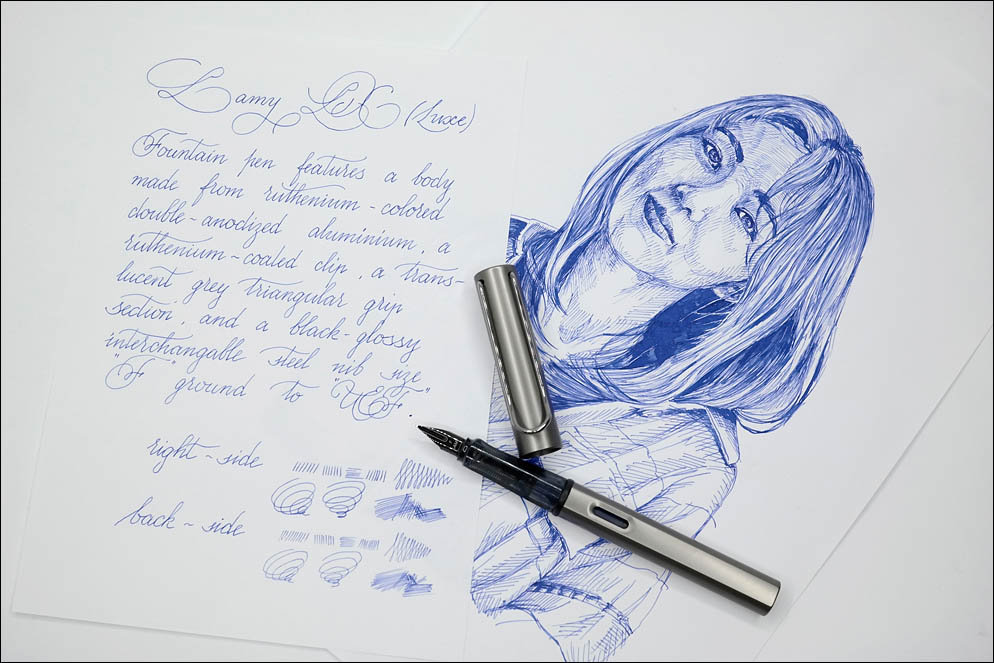 Lamy LUX (Luxe)
Fountain pen features a body
made from ruthenium-colored
double-anodized aluminium, a
ruthenium-coated clip, a trans-
lucent grey triangular grip
section, and a black-glossy
interchangable steel nib size
"F" ground to "UEF".
right-side
back-side